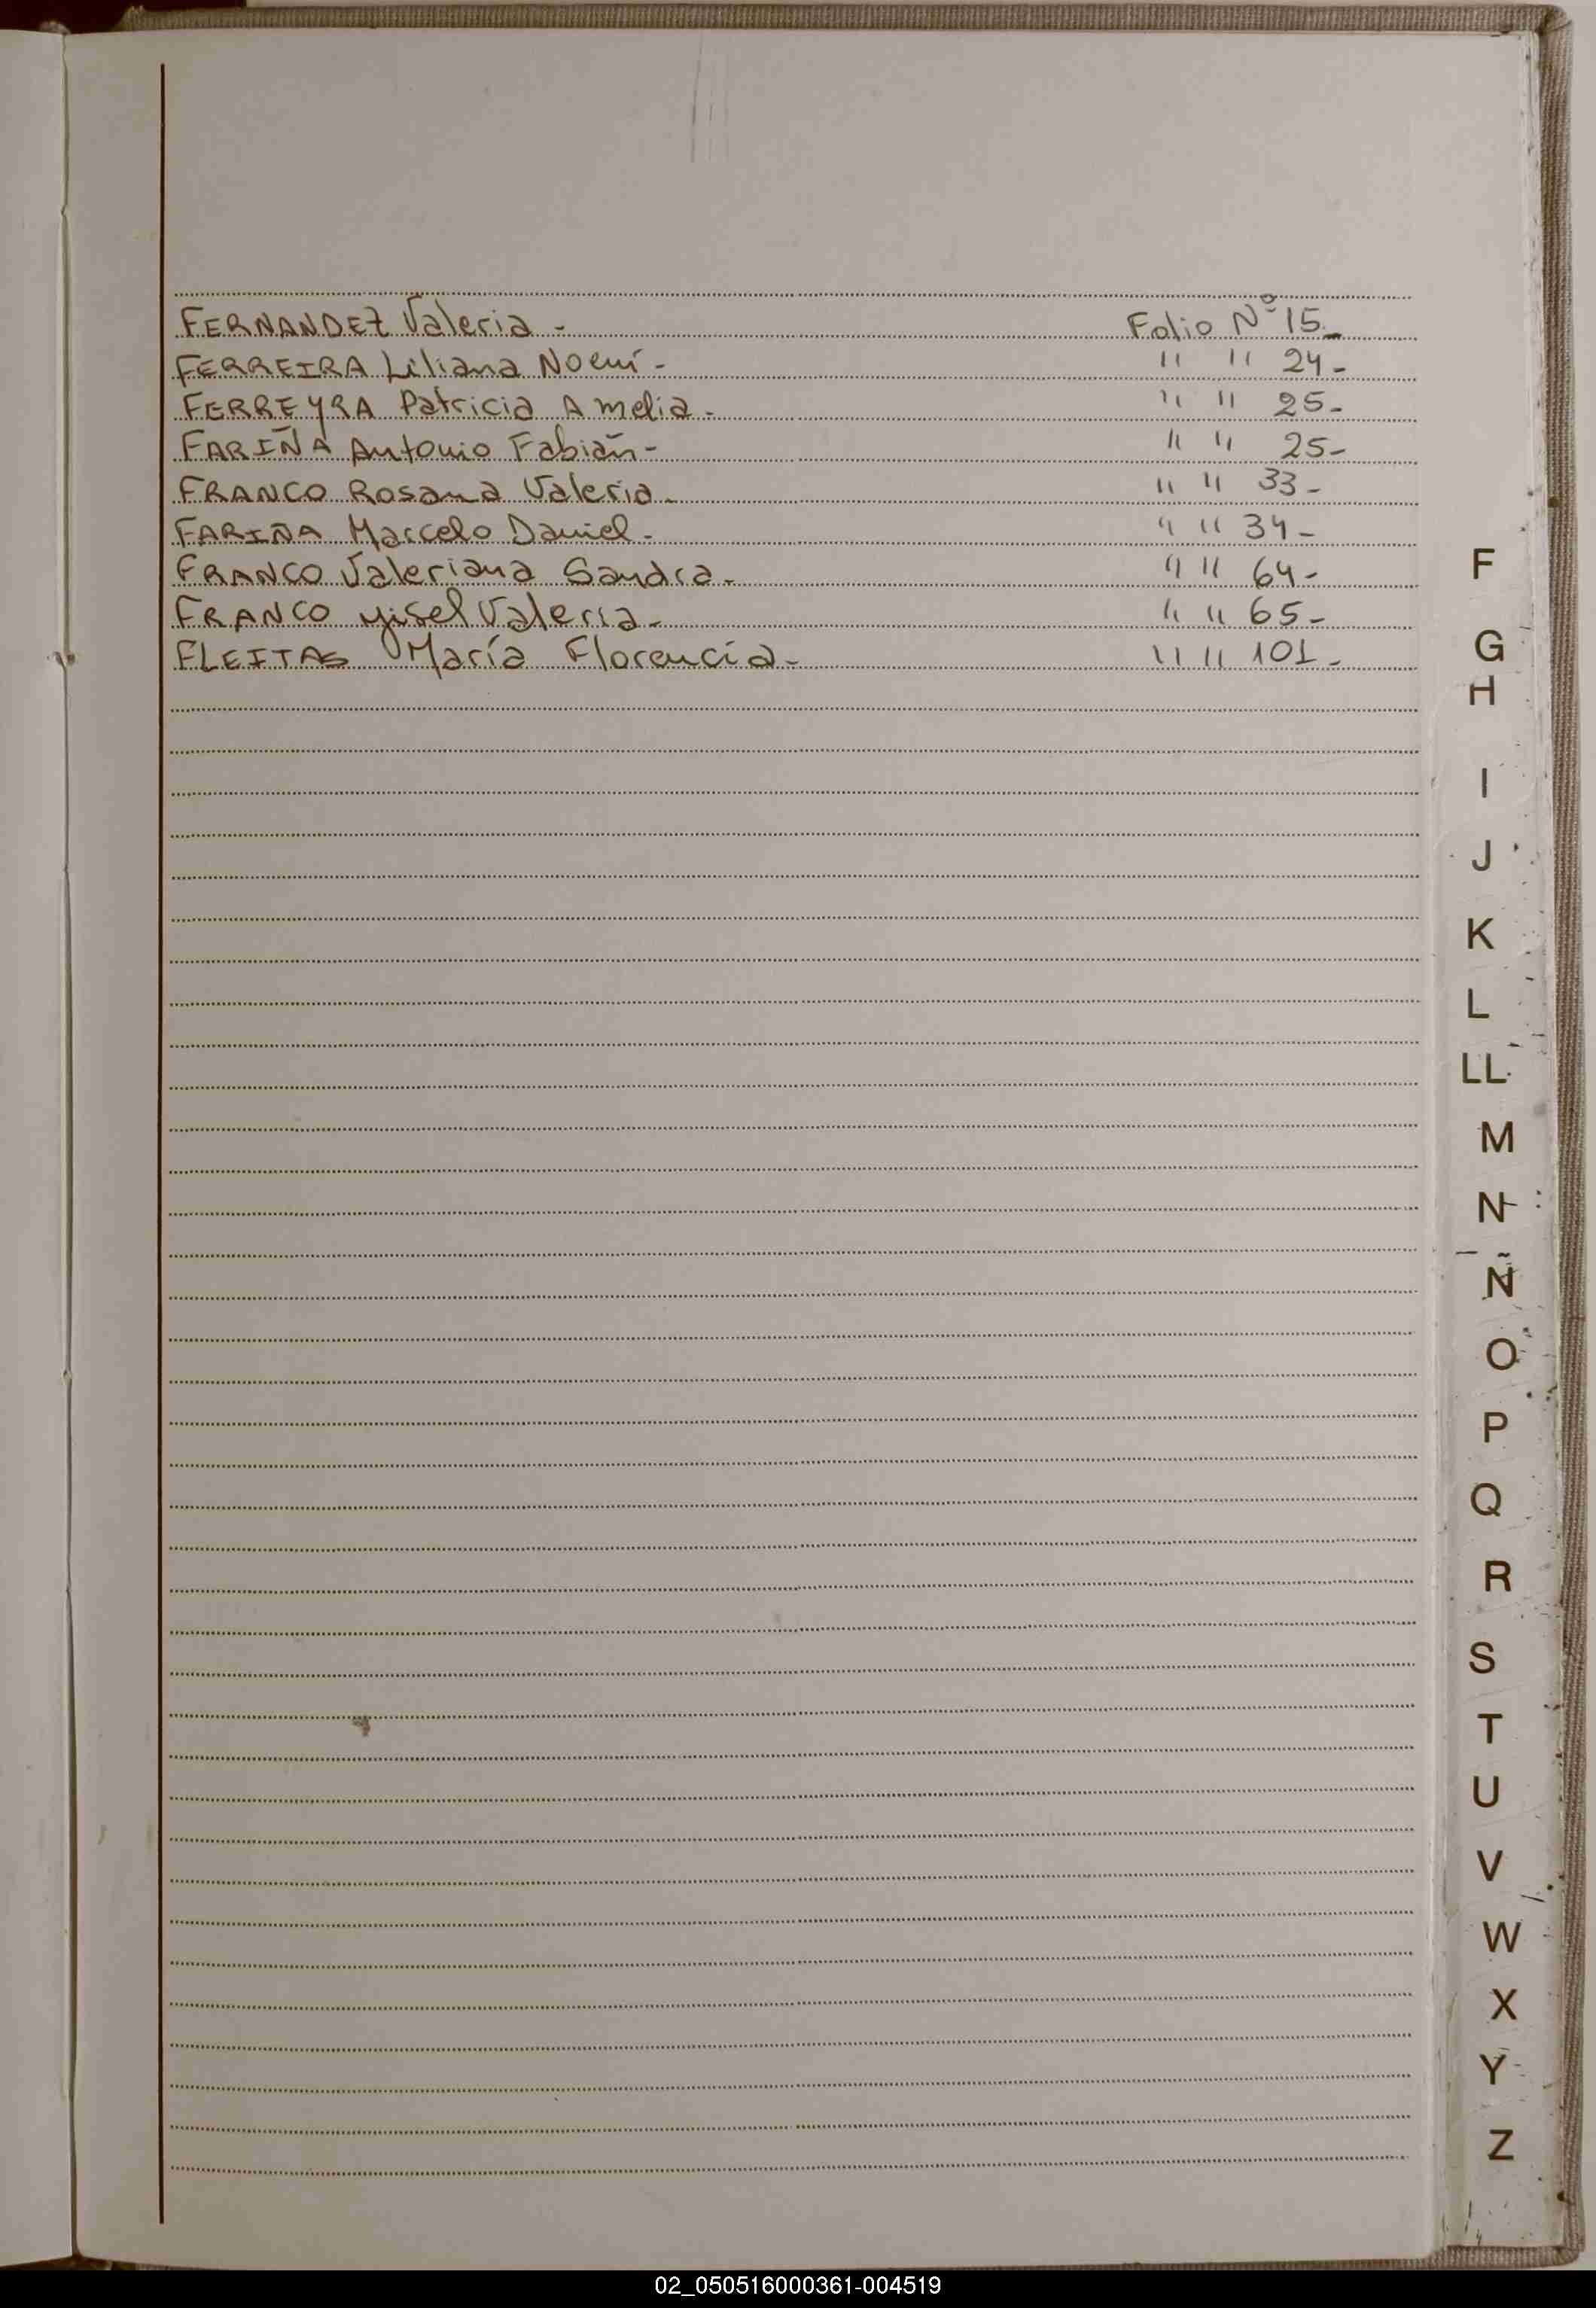 FERNANDEZ Valeria - Folio Nº 15-
FERREIRA Liliana Noemí - " " 24-
FERREYRA Patricia Amelia - " " 25-
FARIÑA Antonio Fabián - " " 25-
FRANCO Rosana Valeria - " " 33-
FARIÑA Marcelo Daniel - " " 34-
FRANCO Valeriana Sandra - " " 64-
FRANCO Yisel Valeria - " " 65-
FLEITAS María Florencia - " " 101-
F
G
H
I
J
K
L
LL
M
N
Ñ
O
P
Q
R
S
T
U
V
W
X
Y
Z
02_050516000361-004519